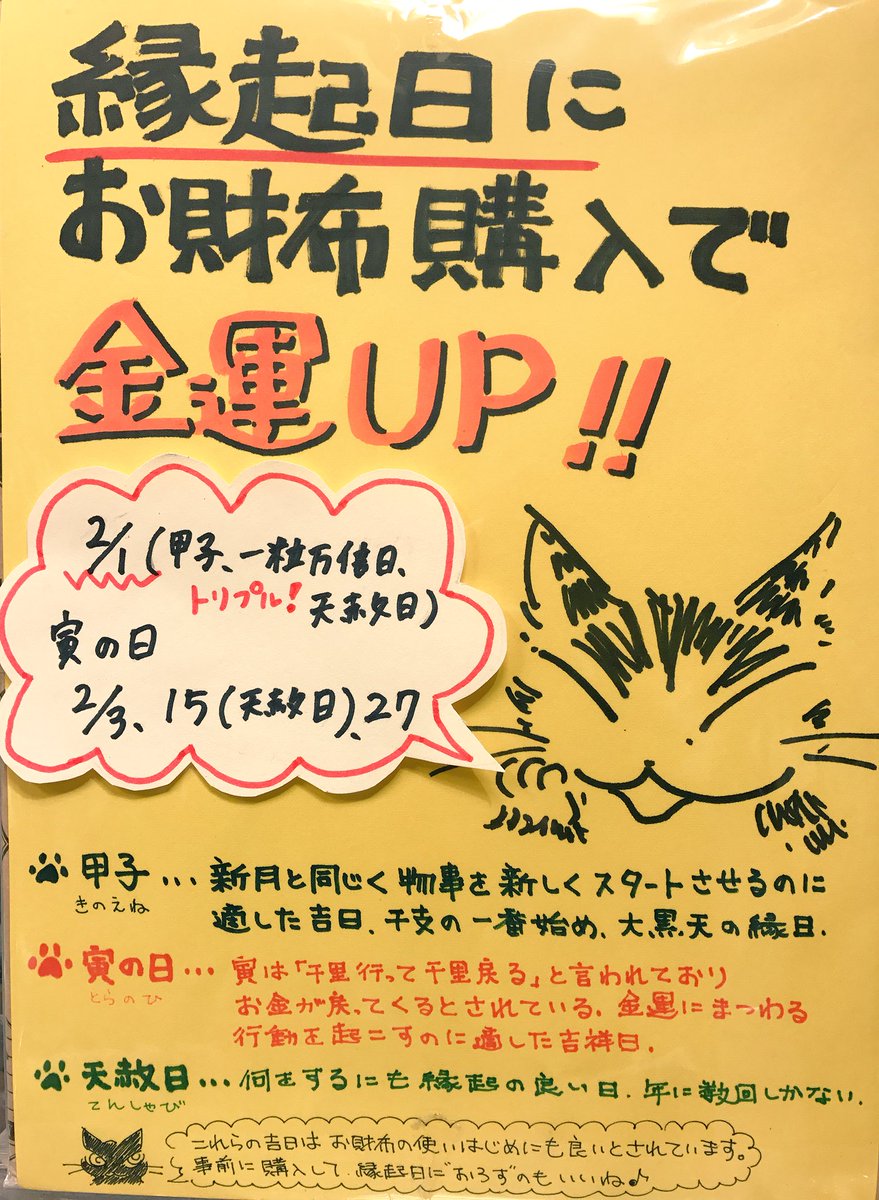 縁起日に
お財布購入で
金運UP!!
2/1(甲子、一粒万倍日、
トリプル! 天赦日)
寅の日
2/3、15(天赦日)、27
甲子… 新月と同じく物事を新しくスタートさせるのに
きのえね
適した吉日、干支の一番始め、大黒天の縁日.
寅の日… 寅は「千里行って千里戻る」と言われており
とらのひ
お金が戻ってくるとされている。金運にまつわる
行動を起こすのに適した吉祥日.
天赦日… 何をするにも縁起の良い日.年に数回しかない.
てんしゃび
これらの吉日はお財布の使いはじめにも良いとされています。
事前に購入して、縁起日に"おろす"のもいいね♪